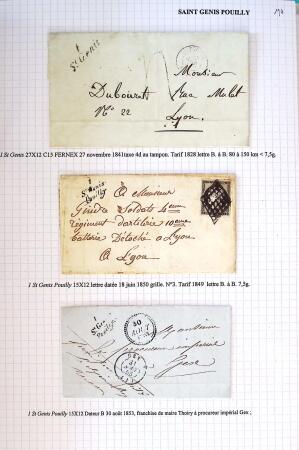 SAINT GENIS POUILLY
194
1
St Genis
Monsieur
Dubouret Rue Mulet
No 22
Lyon
1 St Genis 27X12 C15 FERNEX 27 novembre 1841taxe 4d au tampon. Tarif 1828 lettre B. à B. 80 à 150 km < 7,5g.
1
St Genis
Pouilly
A Monsieur
Soldats 4eme
régiment d'artilerie 10eme
batterie Détaché a Lyon
A Lyon
1 St Genis Pouilly 15X12 lettre datée 18 juin 1850 grille. N°3. Tarif 1849 lettre B. à B. 7,5g.
1
St Genis
Pouilly
30
AOUT
Monsieur
procureur impérial
Gex
GEX
31
1 St Genis Pouilly 15X12 Dateur B 30 août 1853, franchise de maire Thoiry à procureur impérial Gex ;